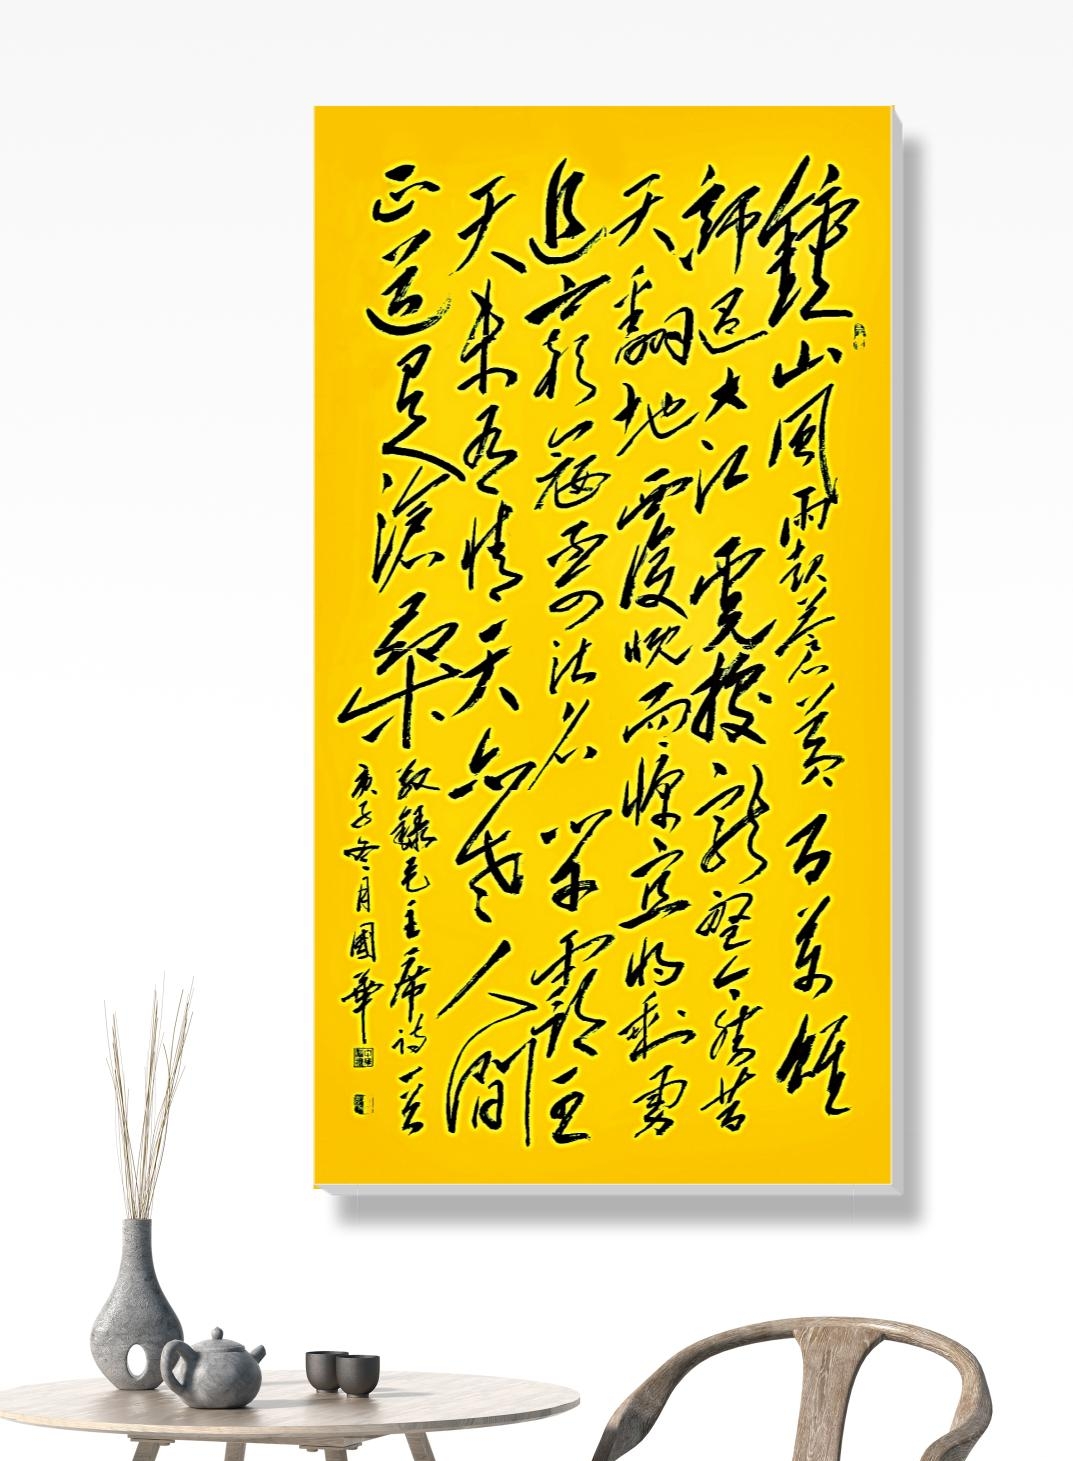 鍾山風雨起蒼黃百萬雄
師過大江虎據龍盤今勝昔
天翻地覆慨而慷宜將剩勇
追窮寇不可沽名學霸王
天若有情天亦老人間
正道是滄桑
敬錄毛主席詩一首
庚子冬月國華